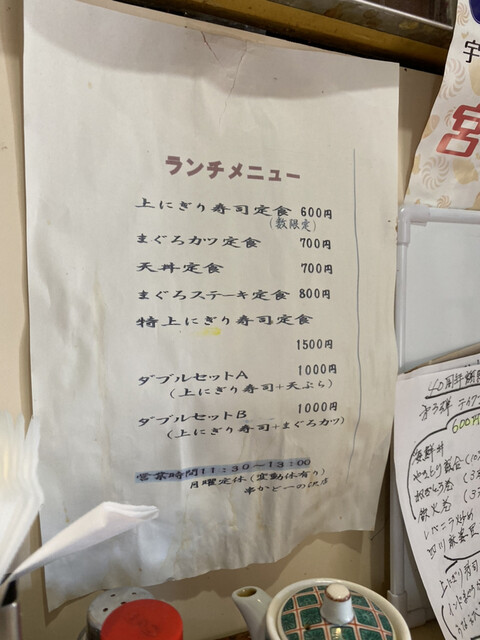 ランチメニュー
上にぎり寿司定食 600円
(数限定)
まぐろカツ定食 700円
天丼定食 700円
まぐろステーキ定食 800円
特上にぎり寿司定食
1500円
ダブルセットA 1000円
(上にぎり寿司+天ぷら)
ダブルセットB 1000円
(上にぎり寿司+まぐろカツ)
営業時間11:30~13:00
月曜定休(変動休有り)
串かどーの沢店
宇
宮
40周年
600円
海鮮丼
鉄火巻
上にぎり寿司